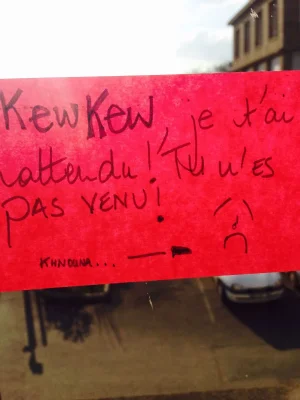 KewKew, je t'ai
attendu! Tu n'es
PAS VENU!